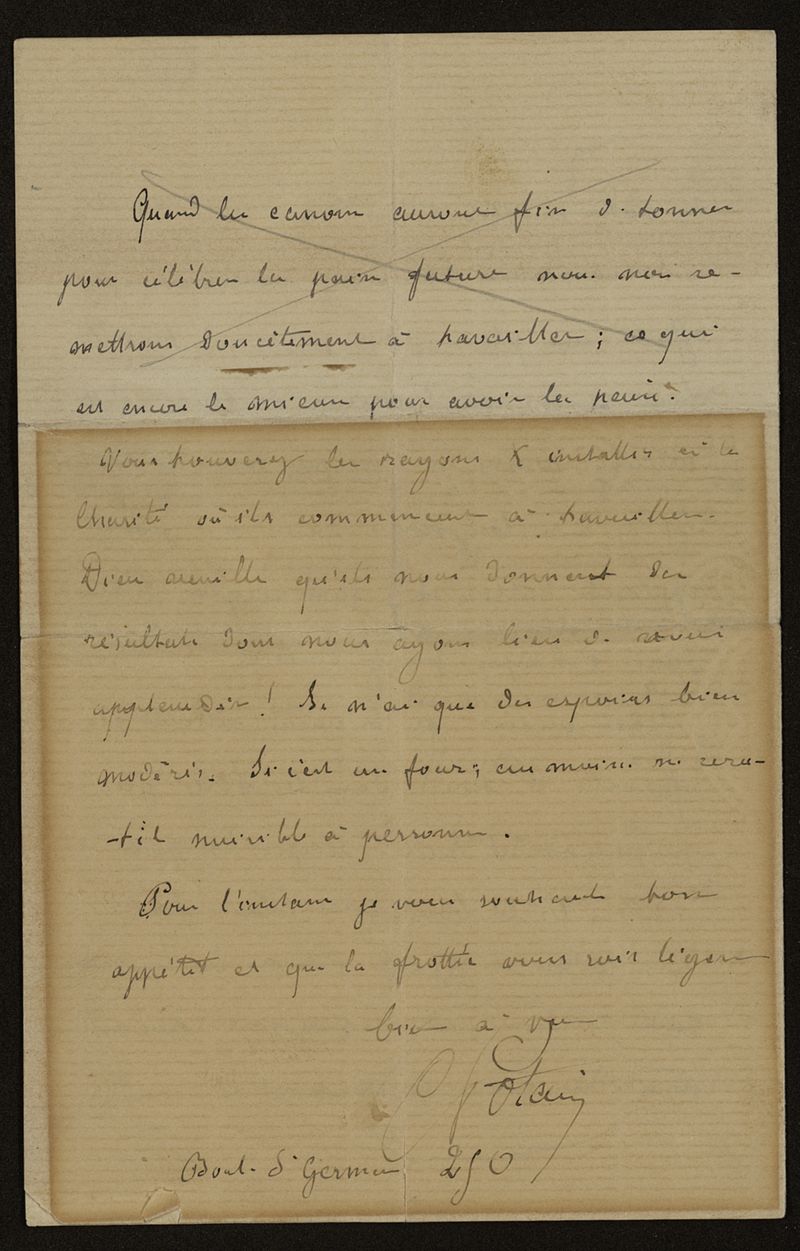 Quand les canons auront fini de tonner
pour célébrer la paix future nous nous re-
mettrons doucêtement à travailler ; ce qui
est encore le mieux pour avoir la paix.
Vous trouverez les rayons X installés à la
Charité où ils commencent à travailler.
Dieu veuille qu'ils nous donnent des
résultats dont nous ayons lieu de nous
applaudir ! Je n'ai que des espoirs bien
modérés. Si c'est un four, au moins ne sera-
-t-il nuisible à personne.
Pour l'instant je vous souhaite bon
appétit et que la frottée vous soit légère
bien à vous
C Potain
Boul. St Germain 250